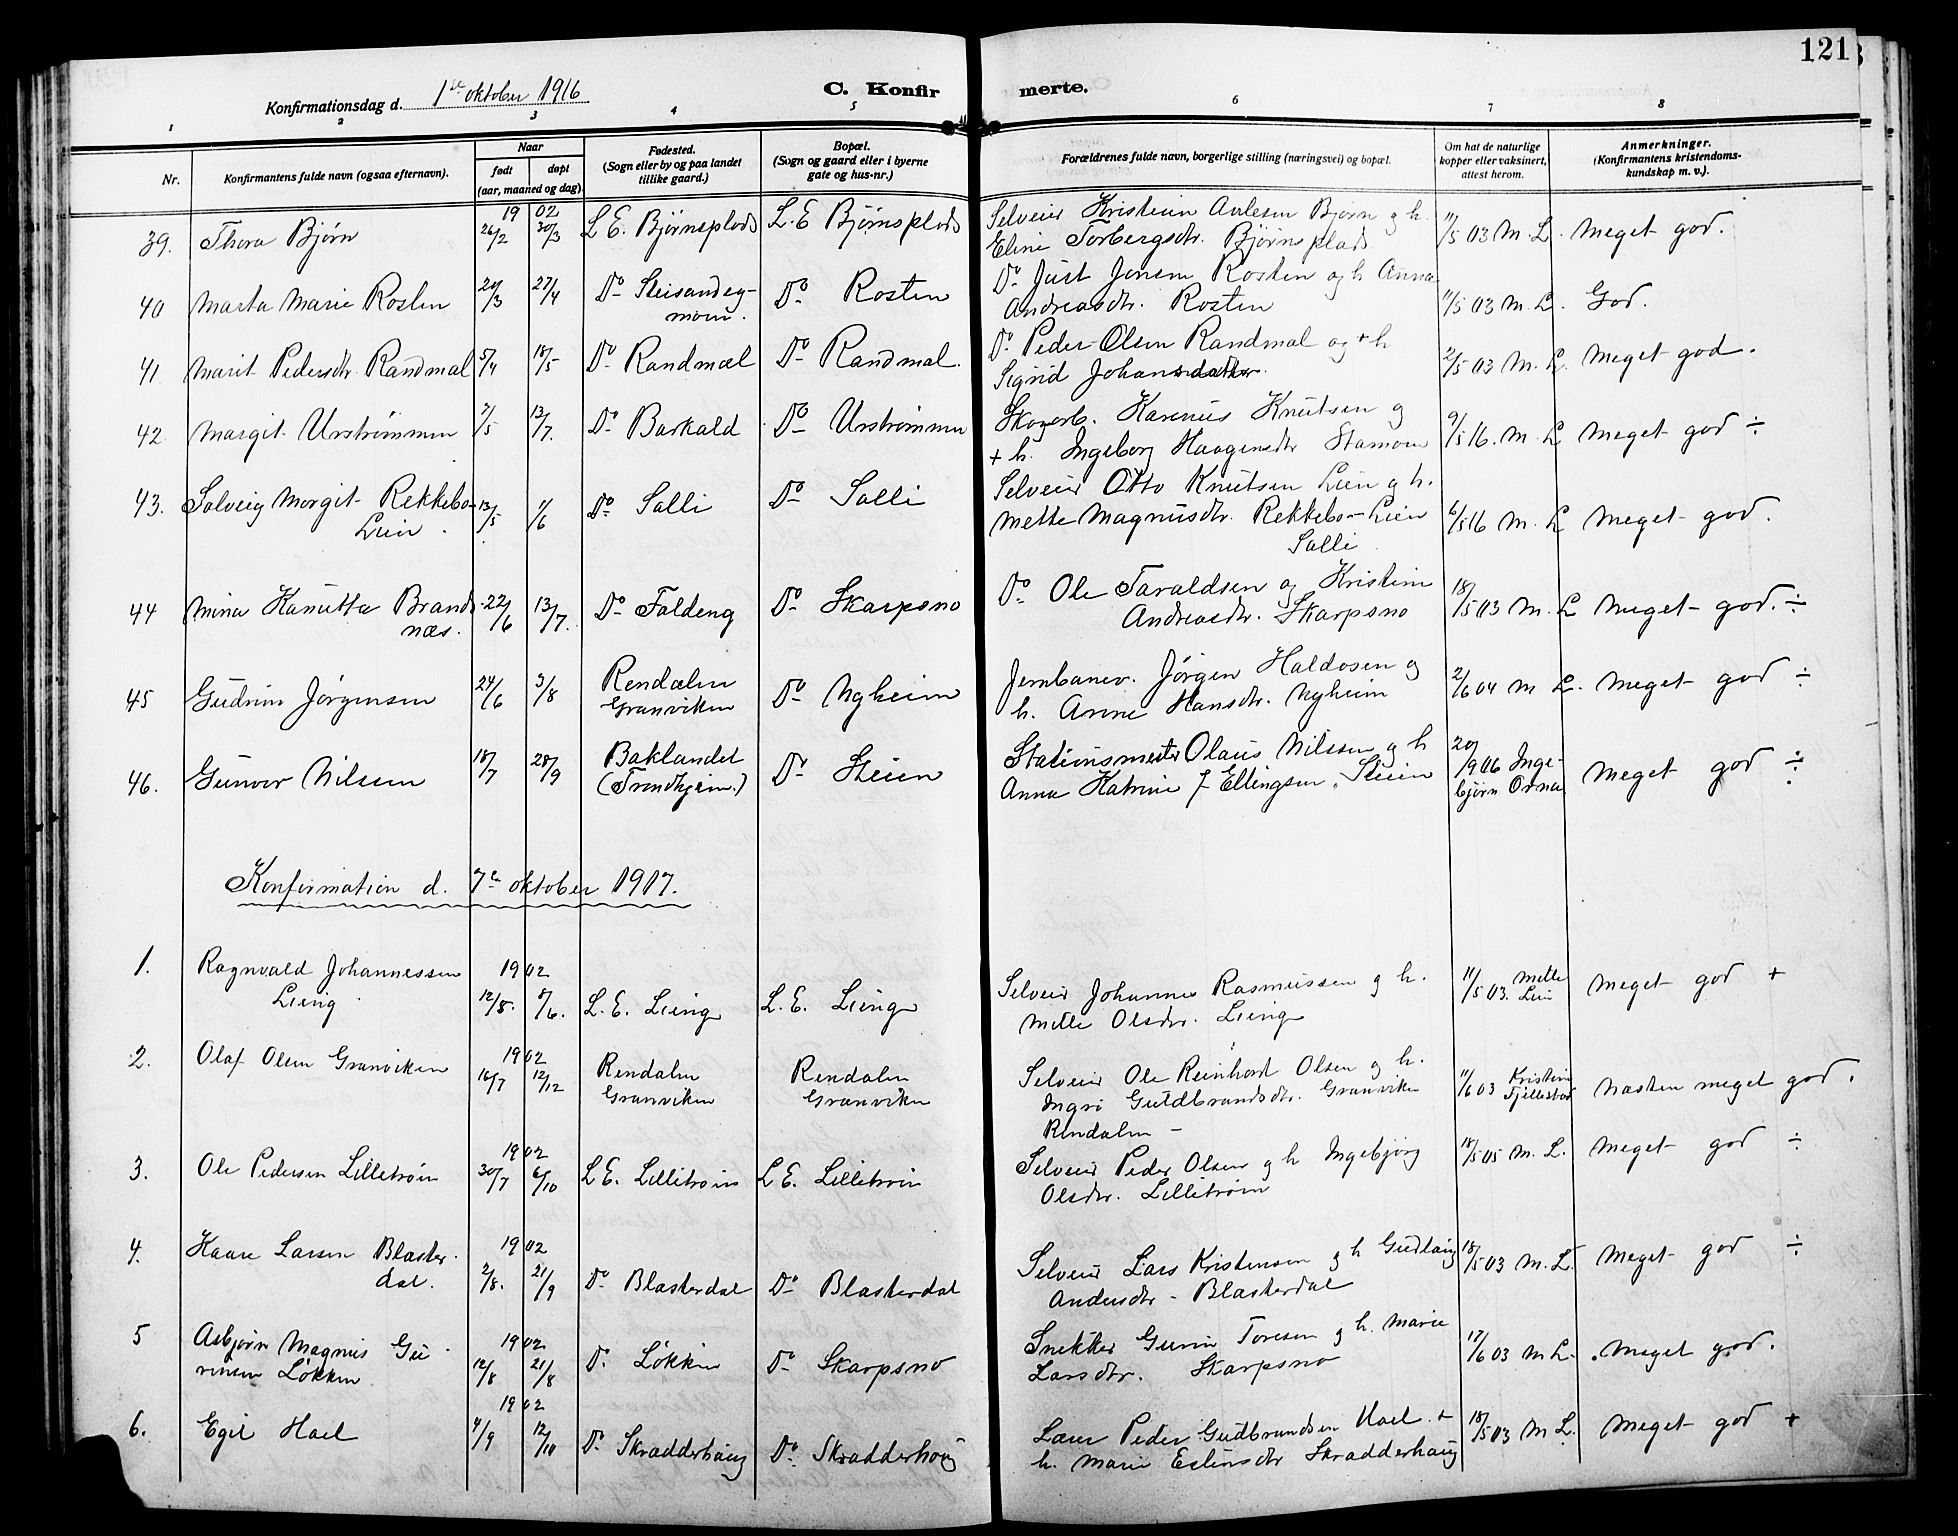 121
Konfirmationsdag d. 1ste oktober 1916
C. Konfirmerte.
1 2 3 4 5 6 7 8
Nr.
Konfirmantens fulde navn (ogsaa efternavn).
Naar
født
døpt
(aar, maaned og dag).
Fødested.
(Sogn eller by og paa landet
tillike gaard.)
Bopæl.
(Sogn og gaard eller i byerne
gate og hus-nr.)
Forældrenes fulde navn, borgerlige stilling (næringsvei) og bopæl.
Om hat de naturlige
kopper eller vaksinert,
attest herom.
Anmerkninger.
(Konfirmantens kristendoms-
kundskap m. v.).
39. Thora Bjørn 1902 26/2 30/3 L. E. Bjørnsplads L. E Bjørnsplads Selveier Kristian Bjørn g h. 11/5 03 M. L. Meget god.
Eline Torbergsdtr. Bjørnsplads
40 Marta Marie Rosten 20/3 27/4 Do Rosten Do Just Jensen Rosten og h Anna 11/5 03 M. L. God.
Andreasdtr. Rosten
41 Marit Pedersdtr Randmæl 5/4 18/5 Do Randmæl Do Randmæl. Do Peder Olsen Randmæl og + h 2/5 03 M. L. Meget god.
Sigrid Johansdatter.
42 Margit Urstrømmen 7/5 13/7. Do Barkald Do Urstrømmen Skogarb. Karenius Knutsen og 9/5 16. M. L Meget god ÷
+ h. Ingeborg Haagensdtr Stamoen
43. Solveig Margit Rekkebo- 13/5 1/6 Do Salli Do Salli Selveier Otto Knutsen Lien g h.
Lien. Mette Magnusdtr. Rekkebo-Lien 6/5 16 M. L Meget god.
Salli
44 Mina Kanutta Brand- 22/6 13/7. Do Faldeng Do Skarpsno Do Ole Taraldsen og Kristine 18/5 03 M. L Meget god. ÷
næs. Andreasdtr. Skarpsno
45 Gudrun Jørgensen 24/6 3/8 Rendalen Do Nyheim Jernbanev. Jørgen Haldosen og 2/6 04 M L. Meget god ÷
Granviken h. Anne Hansdtr. Nyheim
46. Gunvor Nilsen 18/7 28/9 Baklandet Do Steien Stationsmester Olaus Nilssen g h 20/9 06 Inge- Meget god ÷
(Trondhjem.) Anna Katrine f Ellingsen. Steien bjørn
Konfirmation d. 7de oktober 1917.
1. Ragnvald Johannessen 1902
Lieng 12/5. 8/6. L. E. Lieng L. E. Lieng Selveier Johannes Rasmussen g h. 11/5 03. Mette Lien Meget god +
Mette Olsdtr. Lieng
2. Olaf Olsen Granviken 1902 16/7 12/12 Rendalen Rendalen Selveier Ole Reinhart Olsen g h. 11/6 03 Kristine Næsten meget god.
Granviken Granviken Ingri Guldbrandsdtr. Granviken
Rendalen -
3. Ole Pedersen Lilletrøen 1902 30/7 6/10 L E. Lilletrøen L E. Lilletrøen Selveier Peder Olsen g h Ingebjørg 18/5 05 M. L. Meget god ÷
Olsdtr. Lilletrøen
4. Kaare Larsen Blaster- 1902
dal. 2/8. 21/9 Do Blasterdal Do Blasterdal Selveier Lars Kristensen g h Gudlaug 18/5 03 M. L. Meget god ÷
Andersdtr - Blasterdal
5 Asbjørn Magnus Gu- 1902
Løkken 12/8 21/8 Do Løkken Do Skarpsno Snekker Toresen g h. Marie 17/6 03 M L. Meget god.
Larsdtr. Skarpsno
6. Egil Hoel 1902 4/9 12/10 Do Skradderhaug Do Skradderhaug Lærer Peder Gudbrandsen Hoel + 18/5 03 M L. Meget god +
h. Marie Skradderhaug